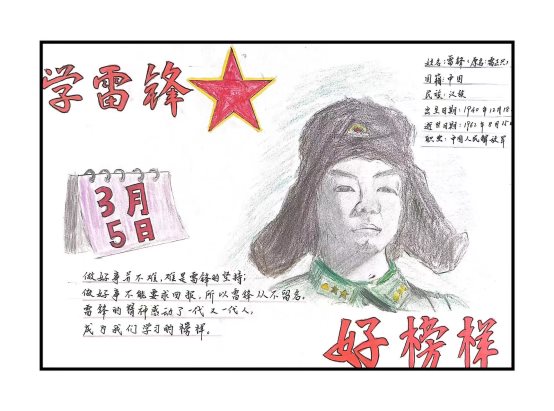 学雷锋
姓名:雷锋(原名:雷正兴)
国籍:中国
民族:汉族
出生日期:1940年12月18
逝世日期:1962年8月15日
职业:中国人民解放军
3月
5日
做好事并不难,难是雷锋的坚持;
做好事不能要求回报,所以雷锋从不留名。
雷锋的精神感动了一代又一代人,
成为我们学习的榜样。
好榜样